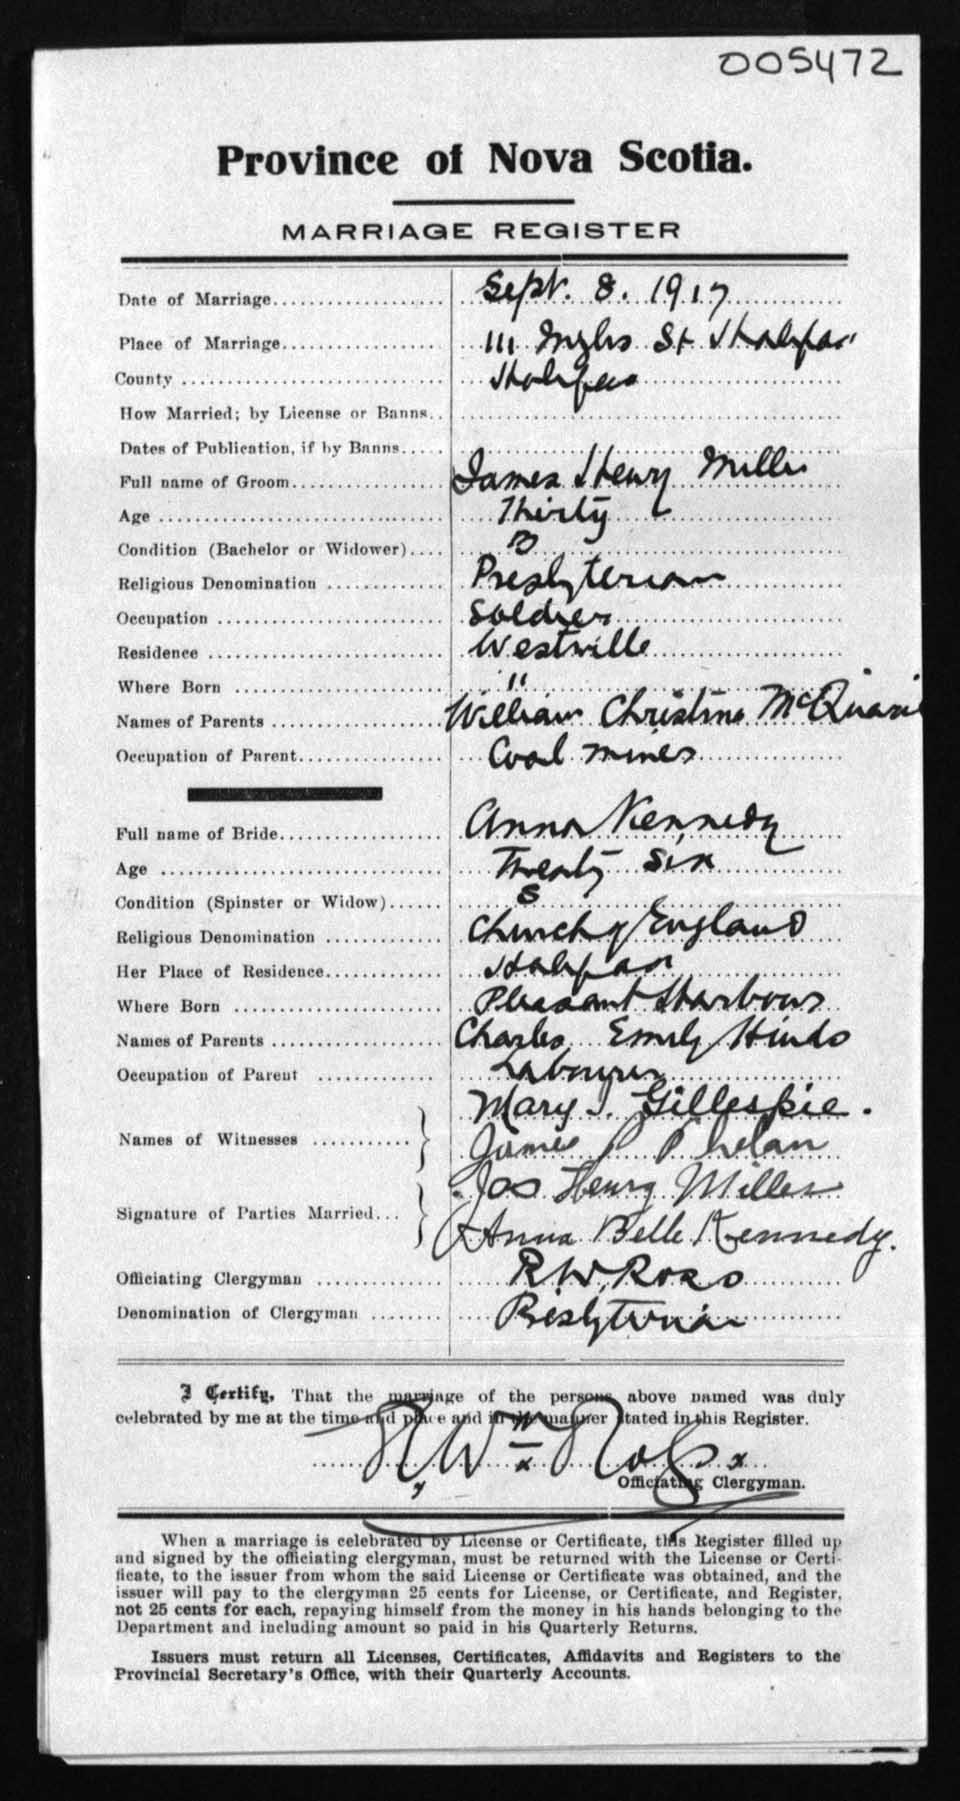 005472
Province of Nova Scotia.
MARRIAGE REGISTER
Date of Marriage Sept. 8. 1917
Place of Marriage 111 St Halifax
County Halifax
How Married; by License or Banns
Dates of Publication, if by Banns
Full name of Groom James Henry Miller
Age Thirty
Condition (Bachelor or Widower) B
Religious Denomination Presbyterian
Occupation Soldier
Residence Westville
Where Born "
Names of Parents William Christina
Occupation of Parent Coal miner
Full name of Bride Anna Kennedy
Age Twenty Six
Condition (Spinster or Widow) S
Religious Denomination Church of England
Her Place of Residence Halifax
Where Born Pleasant Harbour
Names of Parents Charles Emily Hinds
Occupation of Parent Labourer
Names of Witnesses Mary J. Gillespie.
James P Phelan
Signature of Parties Married Jas Henry Miller
Anna Belle Kennedy.
Officiating Clergyman R.W. Ross
Denomination of Clergyman Presbyterian
I Certify, That the marriage of the persons above named was duly
celebrated by me at the time and place and in the manner stated in this Register.
R Wm Ross
Officiating Clergyman.
When a marriage is celebrated by License or Certificate, this Register filled up
and signed by the officiating clergyman, must be returned with the License or Certi-
ficate, to the issuer from whom the said License or Certificate was obtained, and the
issuer will pay to the clergyman 25 cents for License, or Certificate, and Register,
not 25 cents for each, repaying himself from the money in his hands belonging to the
Department and including amount so paid in his Quarterly Returns.
Issuers must return all Licenses, Certificates, Affidavits and Registers to the
Provincial Secretary's Office, with their Quarterly Accounts.